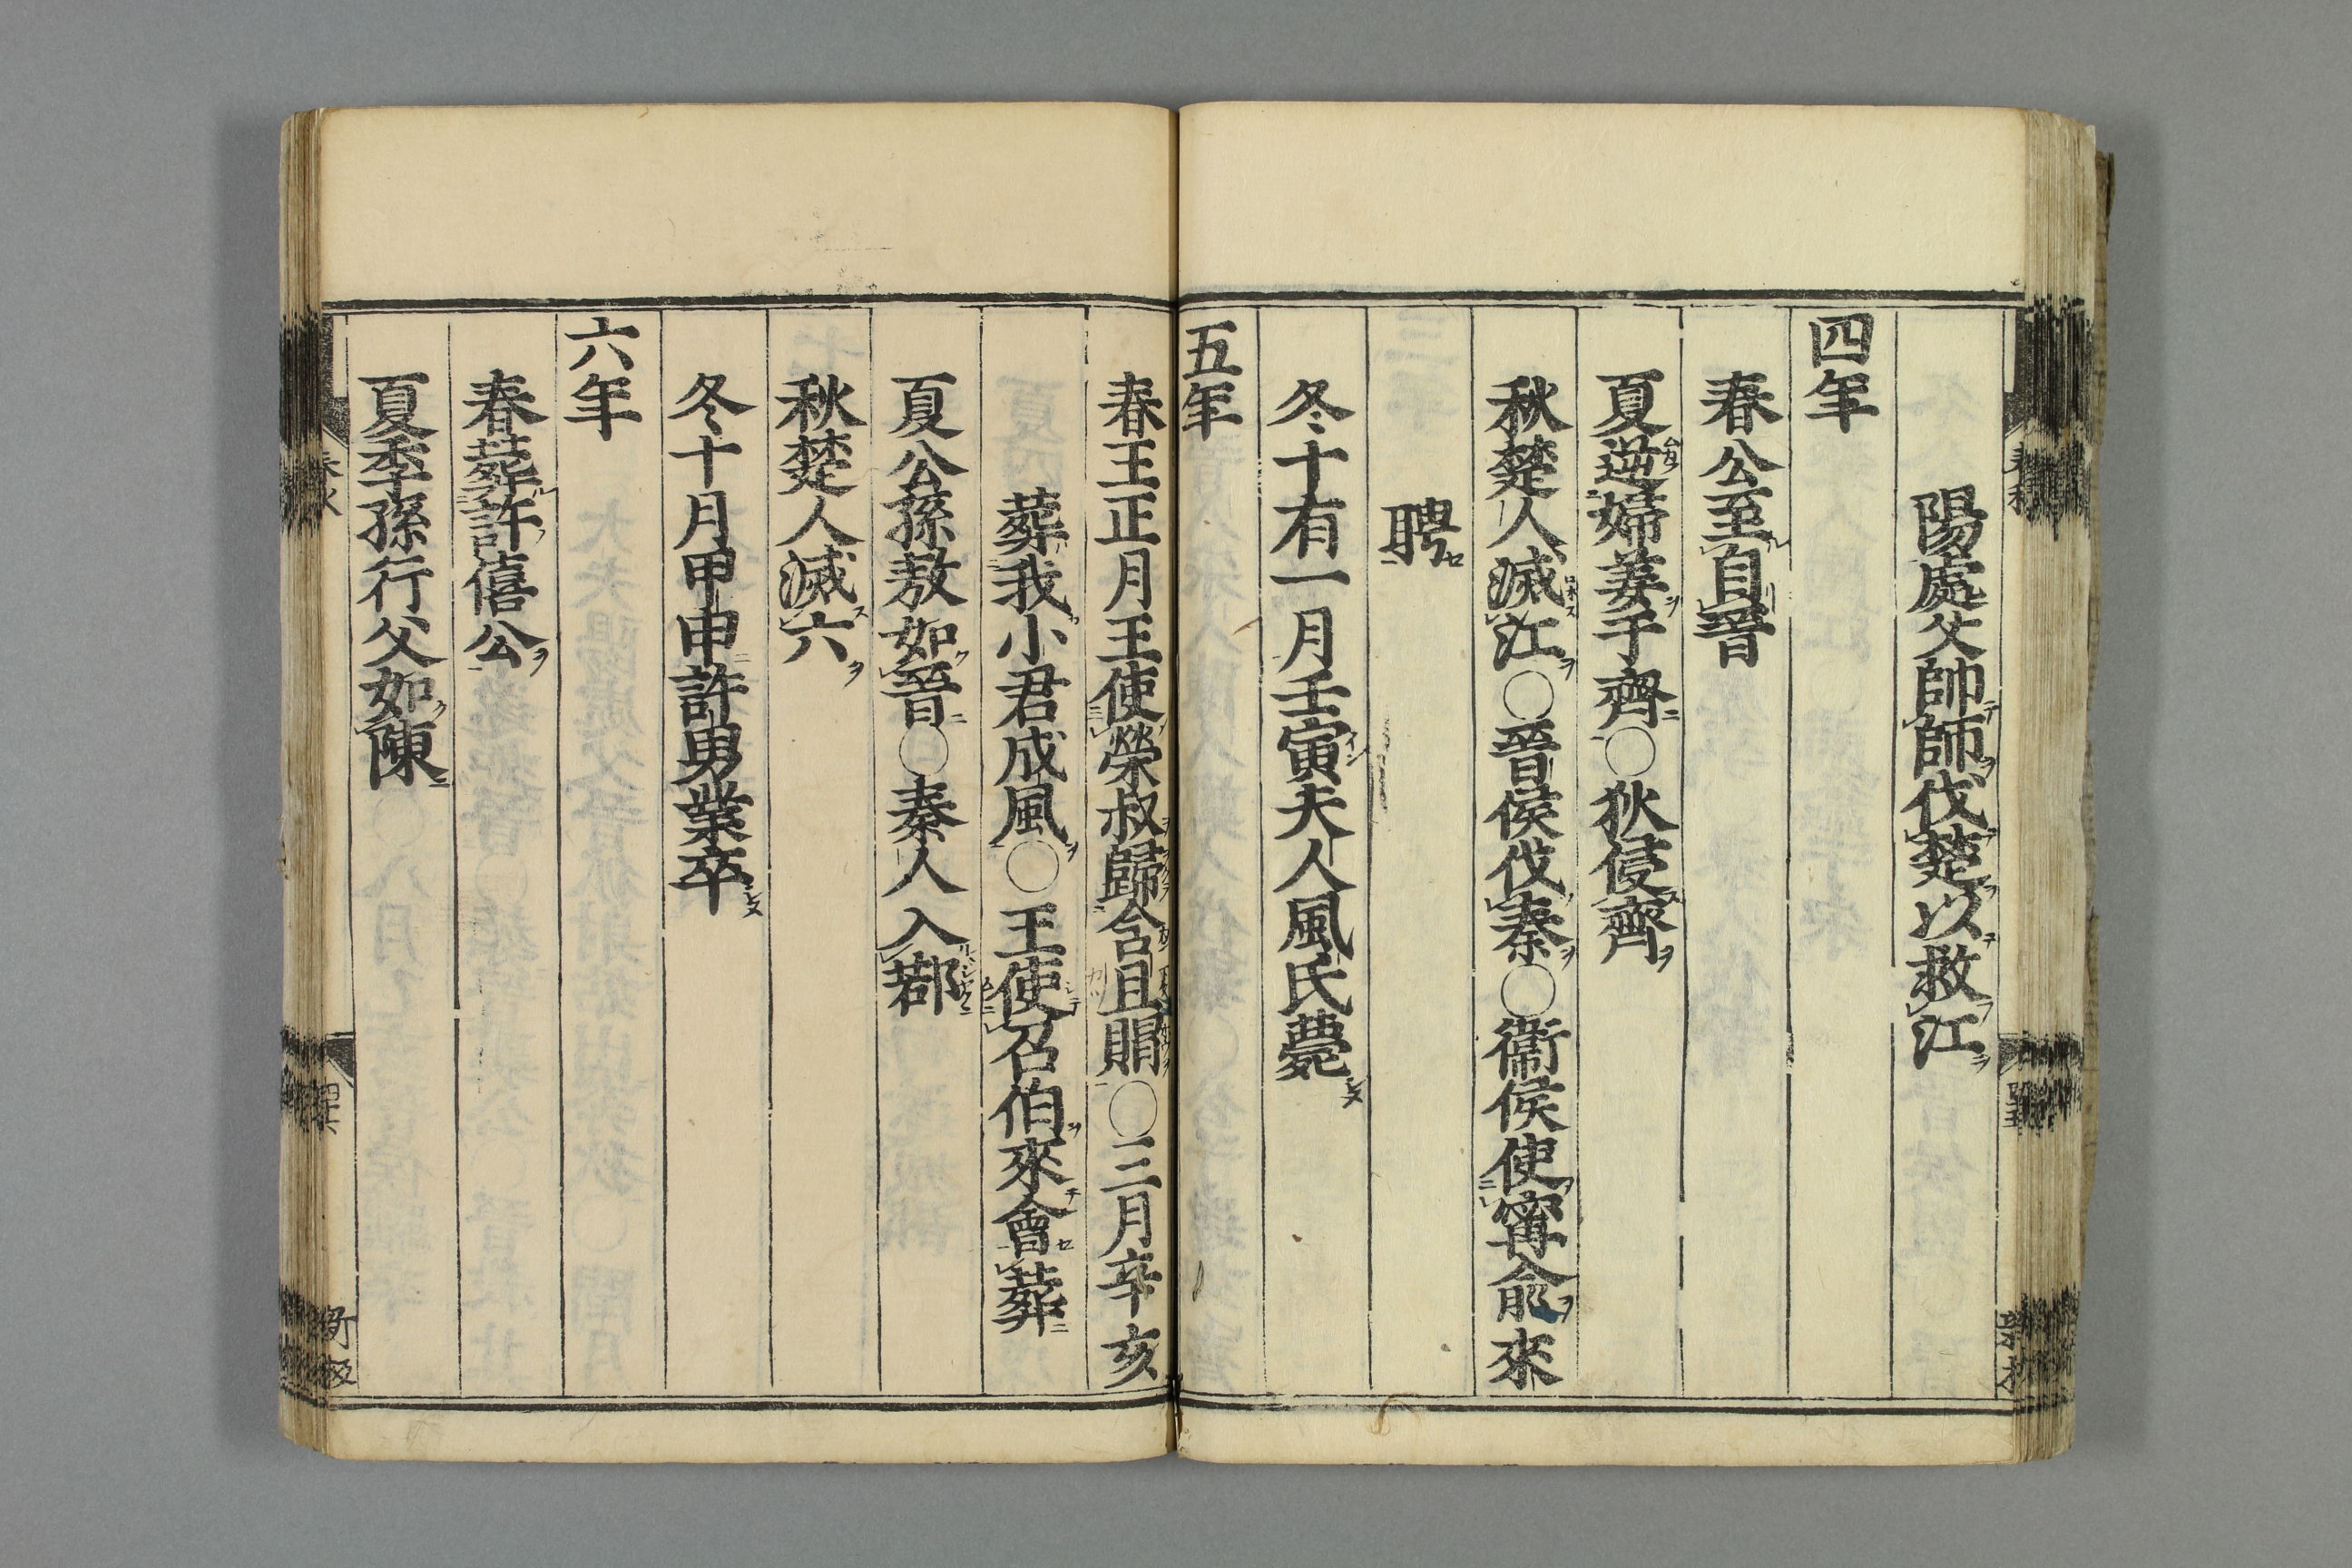 陽處父帥師伐楚以救江
四年
春公至自晉
夏逆婦姜于齊○狄侵齊
秋楚人滅江○晉侯伐秦○衞侯使甯俞來
聘
冬十有一月壬寅夫人風氏薨
五年
春王正月王使榮叔歸含且賵○三月辛亥
葬我小君成風○王使召伯來會葬
夏公孫敖如晉○秦人入鄀
秋楚人滅六
冬十月甲申許男業卒
六年
春葬許僖公
夏季孫行父如陳